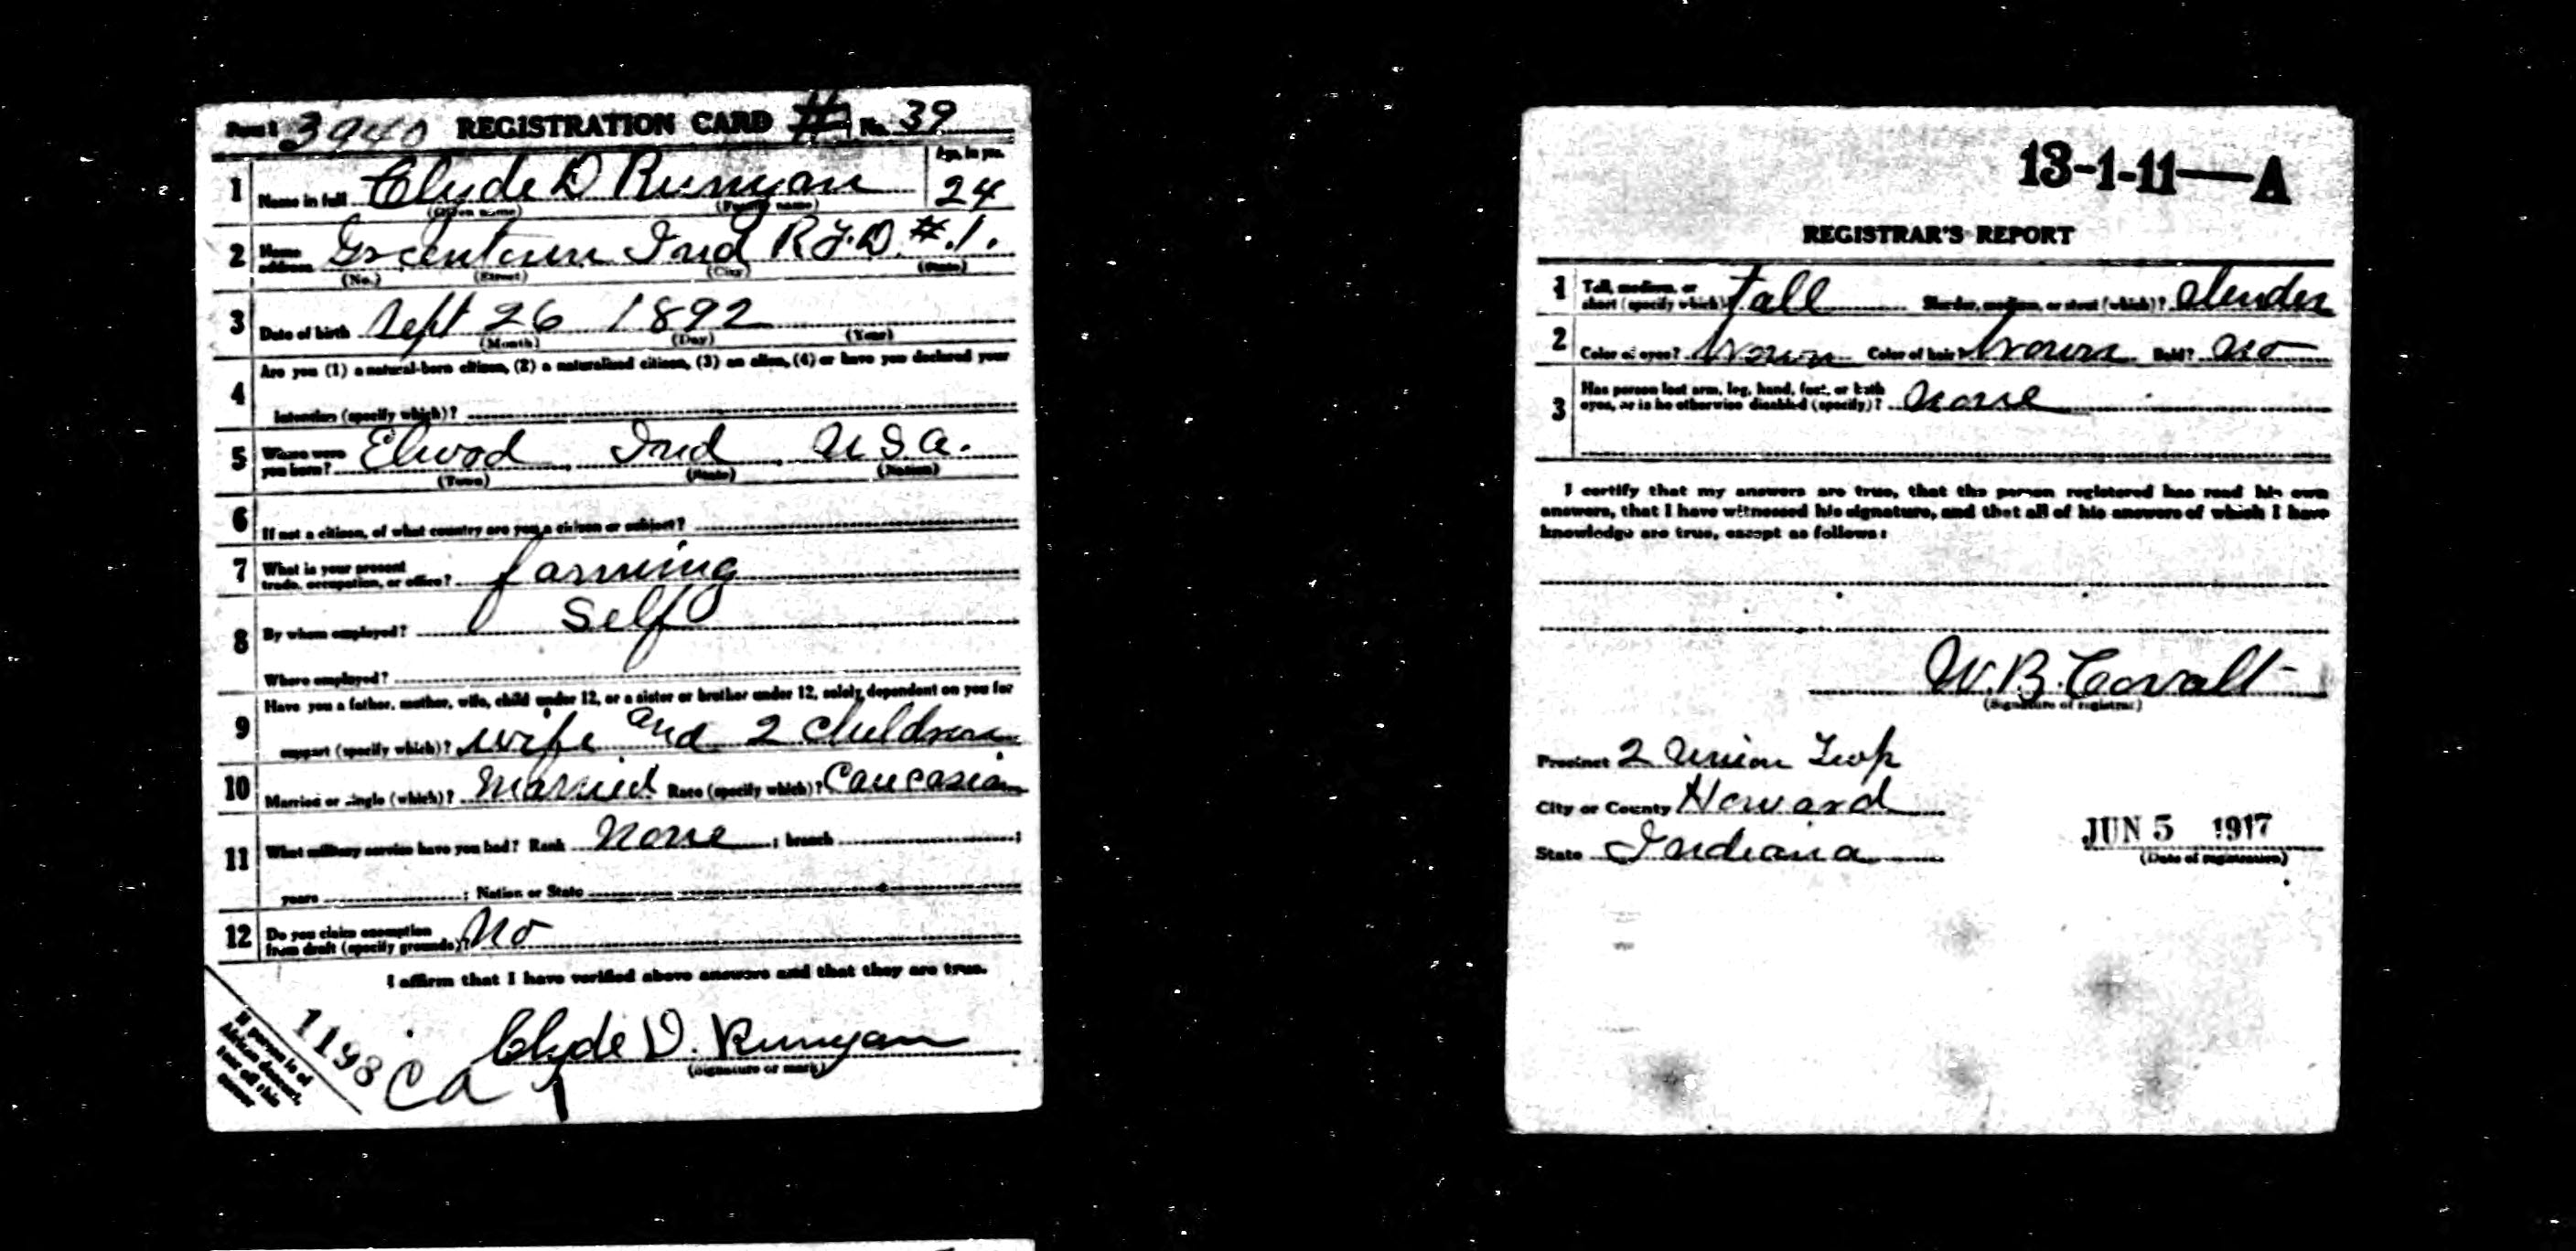 Form 1 3940 REGISTRATION CARD No. 39
1 Name in full Clyde D Runyan Age, in yrs. 24
(Given name) (Family name)
2 Home address Greentown Ind R.F.D. #.1.
(No.) (Street) (City) (State)
3 Date of birth Sept 26 1892
(Month) (Day) (Year)
4 Are you (1) a natural-born citizen, (2) a naturalized citizen, (3) an alien, (4) or have you declared your
intention (specify which)?
5 Where were you born? Elwod Ind U S a.
(Town) (State) (Nation)
6 If not a citizen, of what country are you a citizen or subject?
7 What is your present trade, occupation, or office? farming
8 By whom employed? Self
Where employed?
9 Have you a father, mother, wife, child under 12, or a sister or brother under 12, solely dependent on you for
support (specify which)? wife and 2 children
10 Married or single (which)? Married Race (specify which)? Caucasian
11 What military service have you had? Rank None ; branch ;
years ; Nation or State
12 Do you claim exemption from draft (specify grounds)? No
I affirm that I have verified above answers and that they are true.
Clyde D. Runyan
(Signature or mark)
If person is of
African descent,
tear off this
corner
1198
Ca
13-1-11—A
REGISTRAR'S REPORT
1 Tall, medium, or short (specify which)? Tall Slender, medium, or stout (which)? Slender
2 Color of eyes? brown Color of hair? brown Bald? no
3 Has person lost arm, leg, hand, foot, or both
eyes, or is he otherwise disabled (specify)? none
I certify that my answers are true, that the person registered has read his own
answers, that I have witnessed his signature, and that all of his answers of which I have
knowledge are true, except as follows:
W.B. Covalt
(Signature of registrar)
Precinct 2 Union Twp
City or County Howard
State Indiana
JUN 5 1917
(Date of registration)